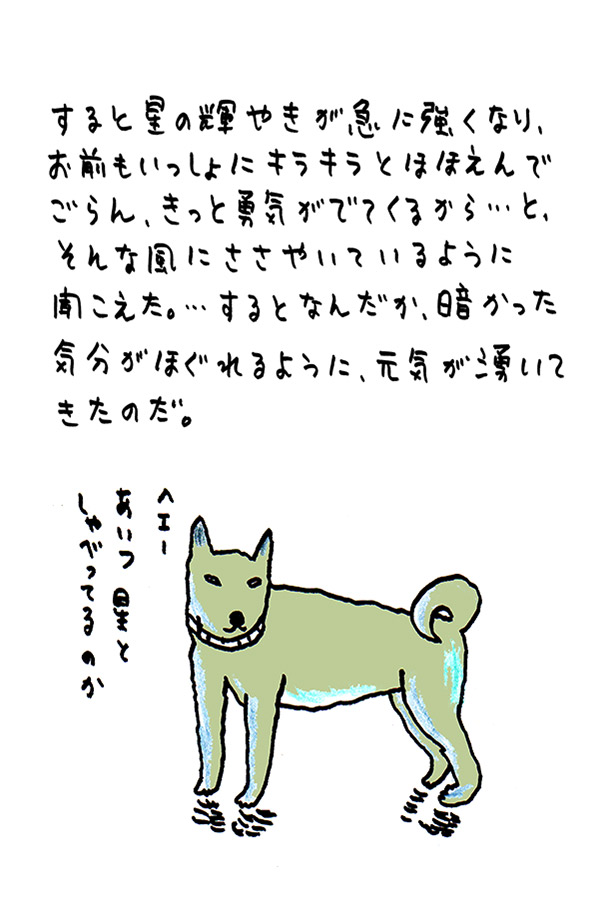 すると星の輝やきが急に強くなり、
お前もいっしょにキラキラとほほえんで
ごらん、きっと勇気がでてくるから…と、
そんな風にささやいているように
聞こえた。…するとなんだか、暗かった
気分がほぐれるように、元気が湧いて
きたのだ。
ヘエー
あいつ星と
しゃべってるのか